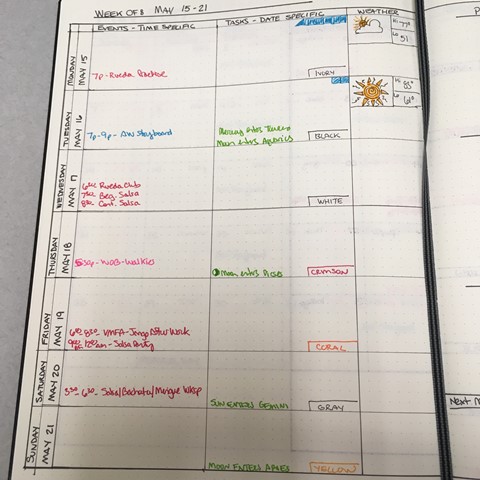 WEEK OF: MAY 15-21
EVENTS - TIME SPECIFIC
TASKS - DATE SPECIFIC
WEATHER
MONDAY
MAY 15
7p - Rueda
IVORY
Hi
77°
Lo
51
TUESDAY
MAY 16
7p-9p - AW Storyboard
Mercury enters Taurus
Moon enters Aquarius
BLACK
Hi
85°
Lo
61°
WEDNESDAY
MAY 17
Rueda Club
Beg. Salsa
Cont. Salsa
WHITE
THURSDAY
MAY 18
530p - WOB-Walkies
Moon enters Pisces
CRIMSON
FRIDAY
MAY 19
VMFA - Work
Salsa Party
CORAL
SATURDAY
MAY 20
530 - 630 - Salsa/Bachata/Mengue Wksp
SUN ENTERS GEMINI
GRAY
Next
SUNDAY
MAY 21
MOON ENTERS ARIES
YELLOW